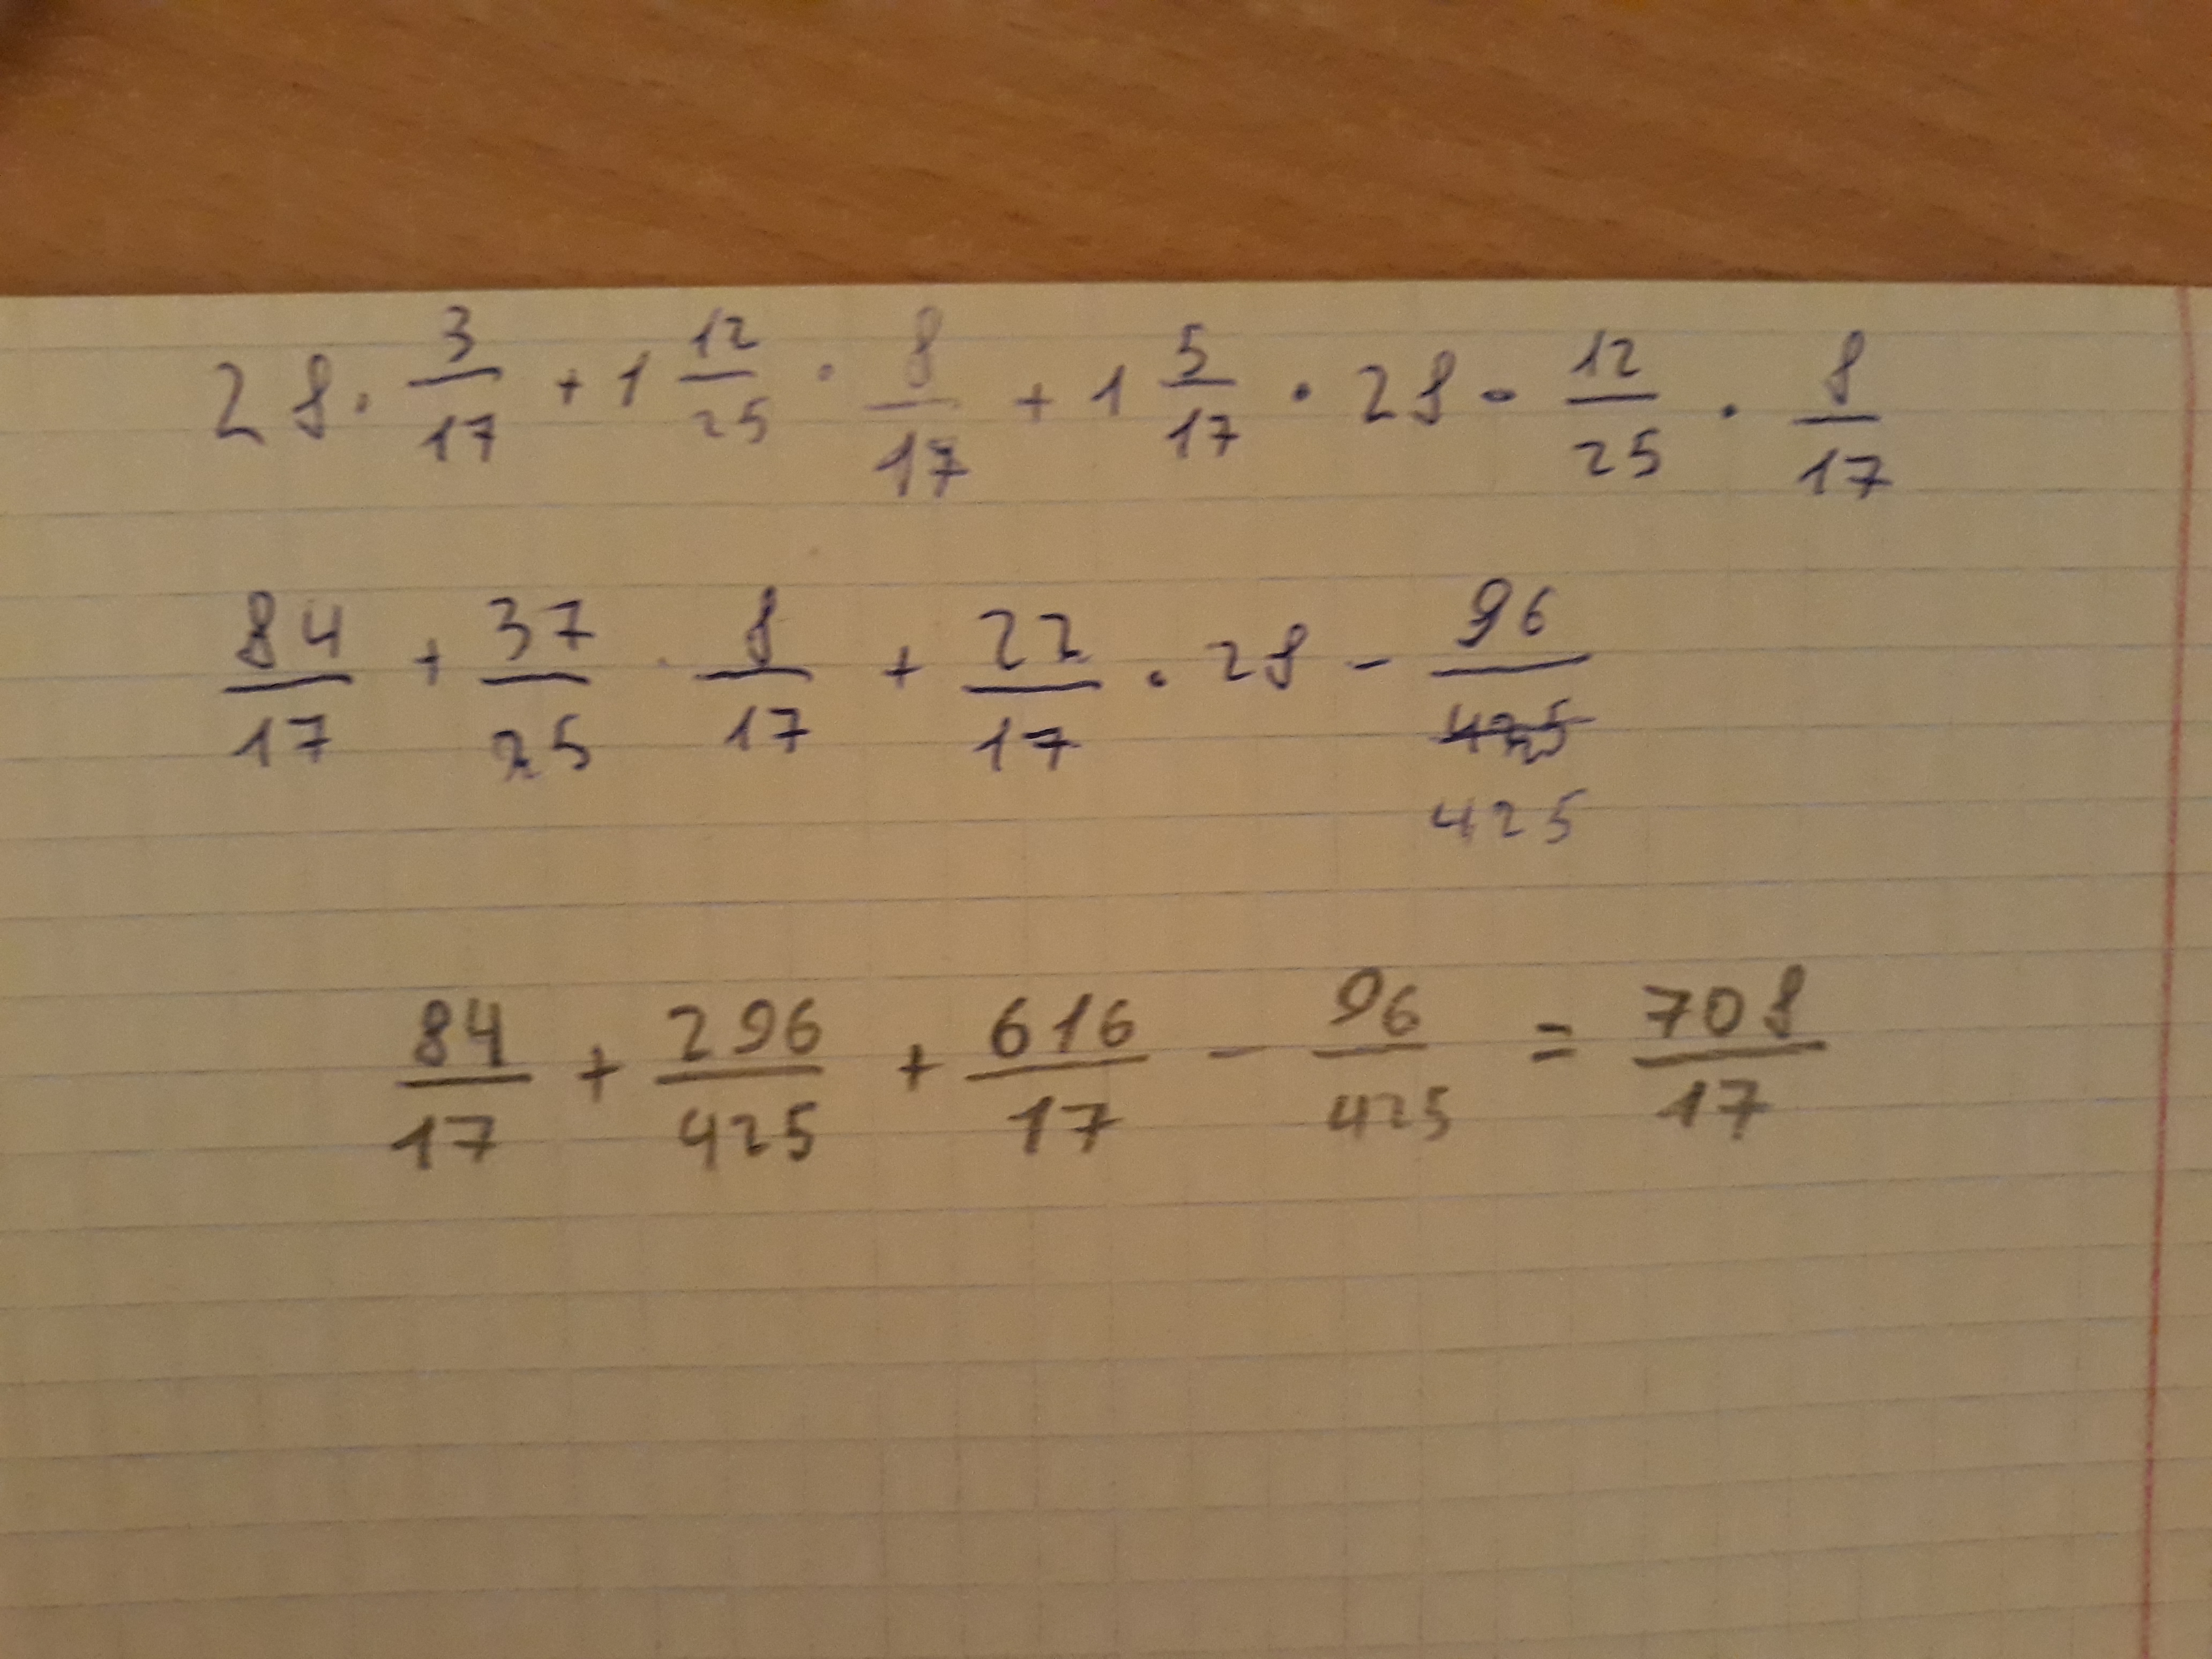 28 · 3/17 + 1 12/25 · 8/17 + 1 5/17 · 28 - 12/25 · 8/17
84/17 + 37/25 · 8/17 + 22/17 · 28 - 96/425
84/17 + 296/425 + 616/17 - 96/425 = 708/17